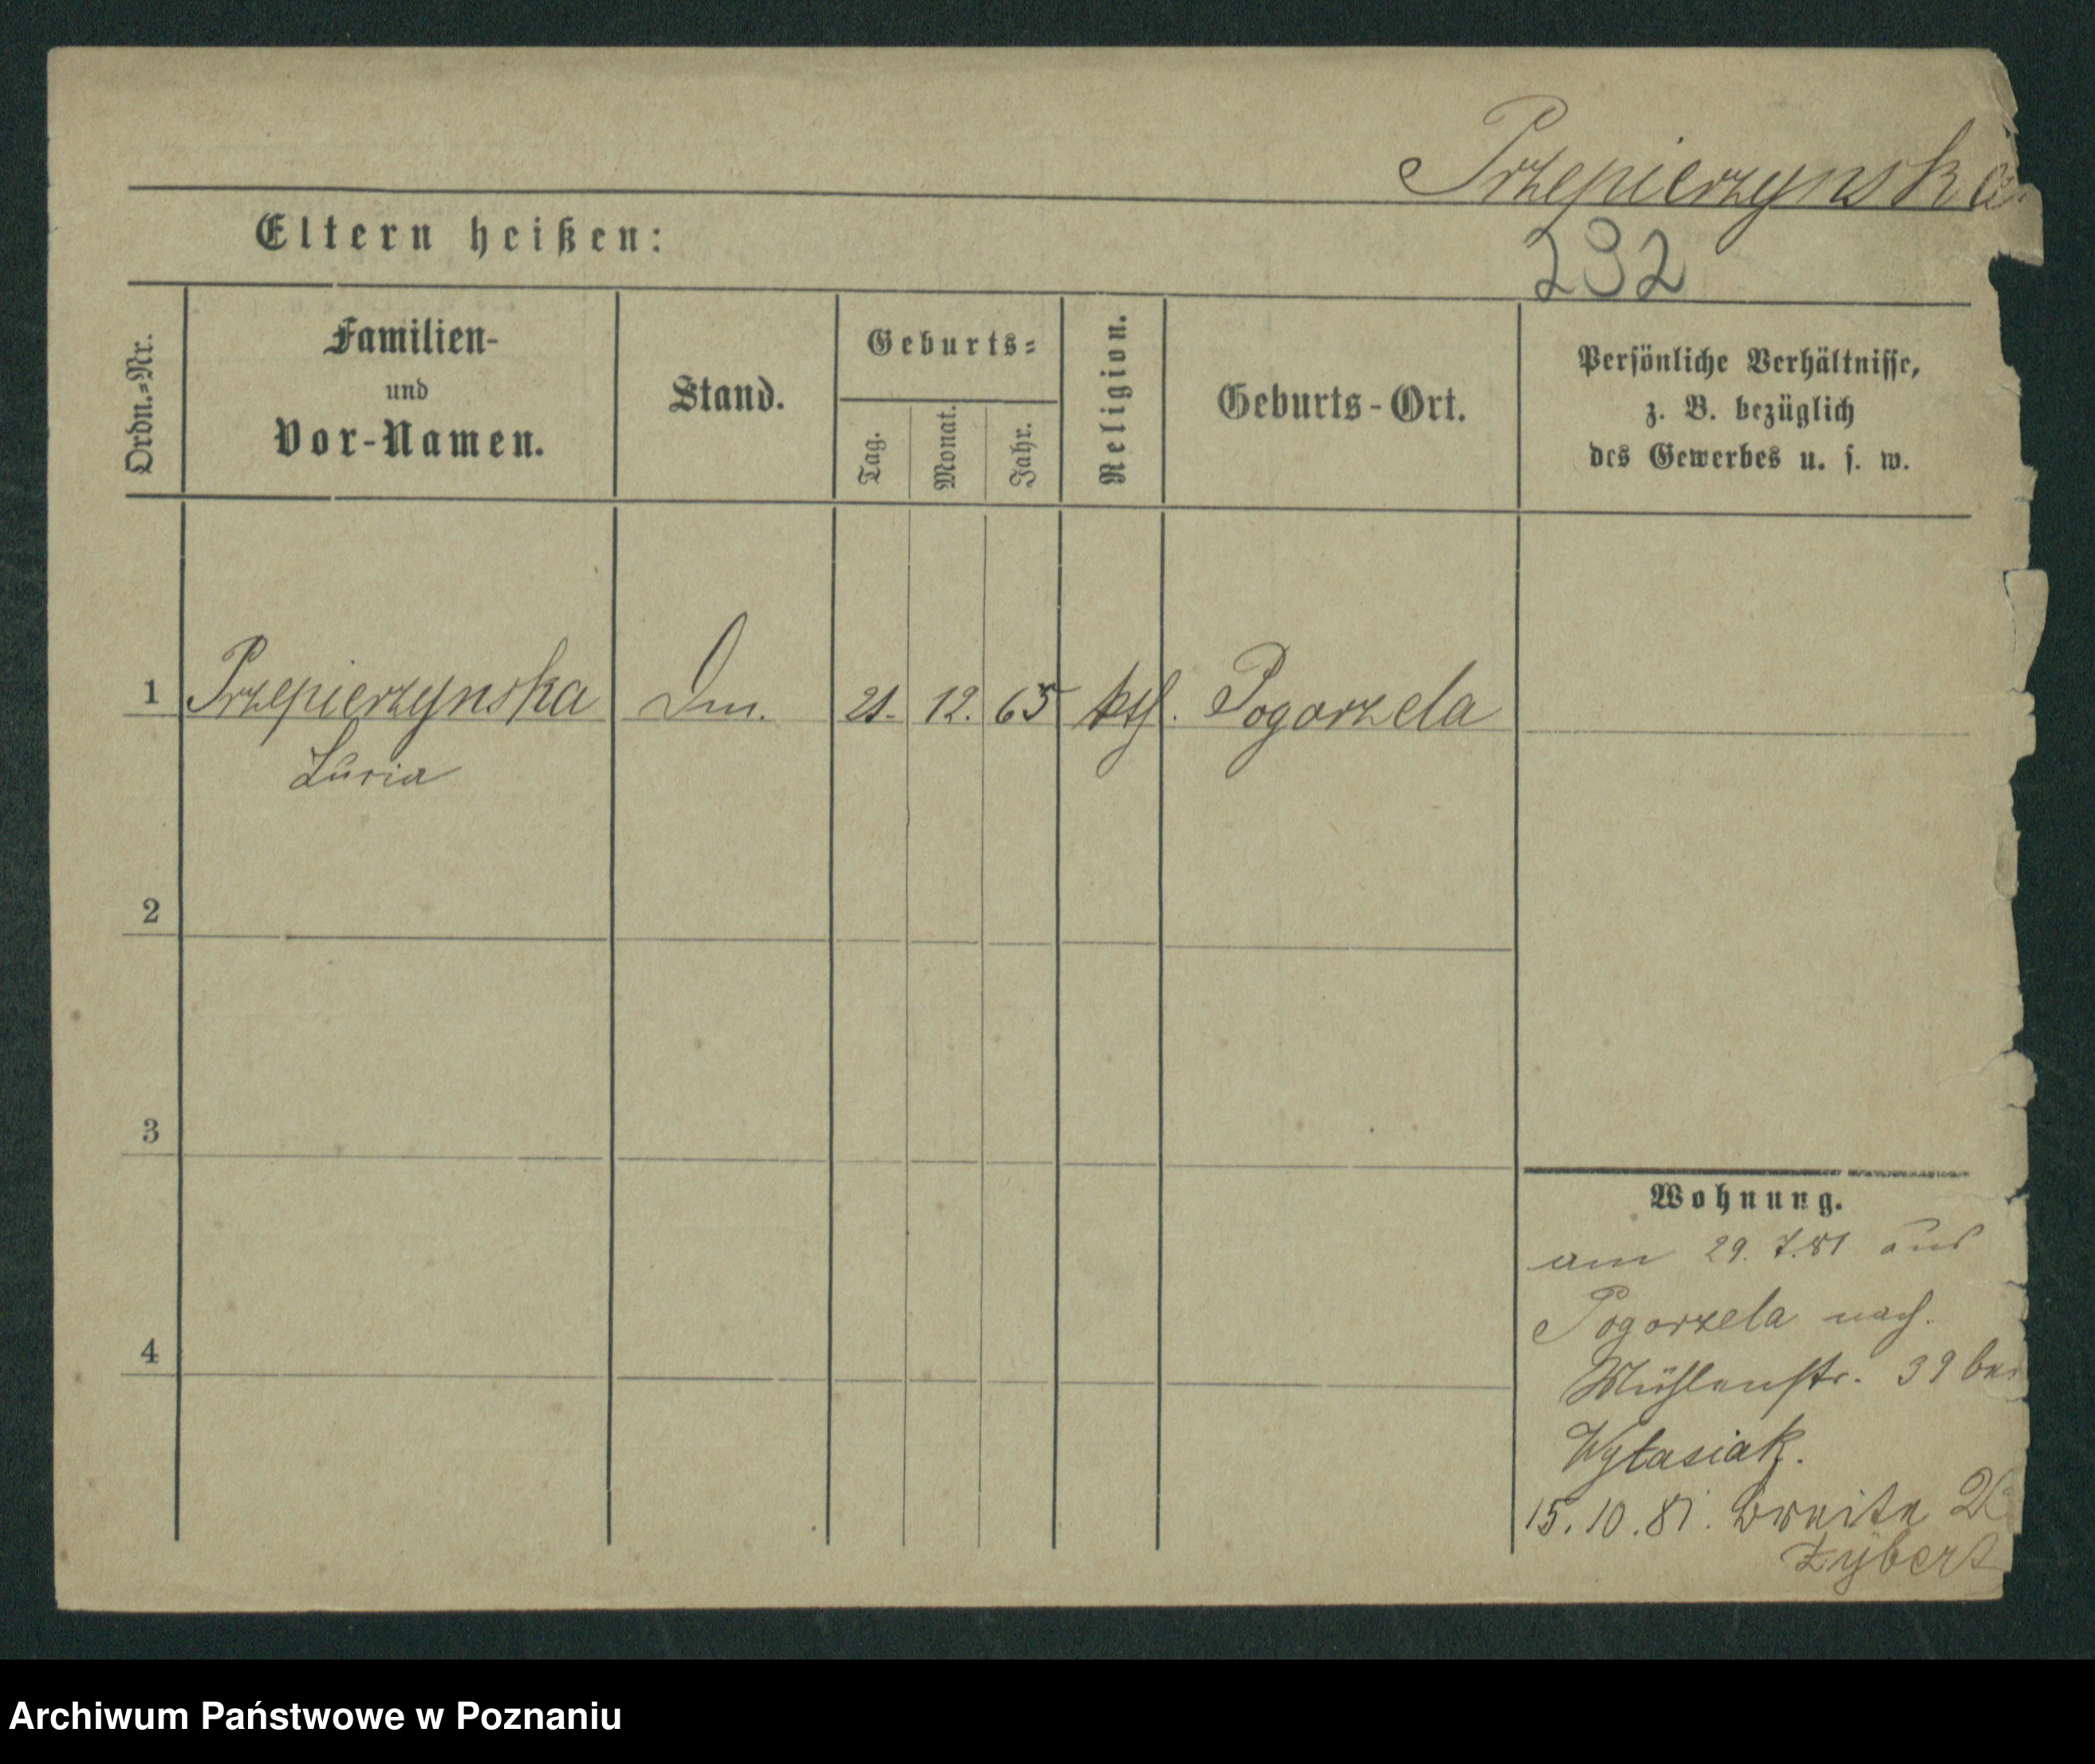 Przepierzynska
Eltern heißen:
232
Ordn.-Nr.
Familien-
und
Vor-Namen.
Stand.
Geburts-
Tag.
Monat.
Jahr.
Religion.
Geburts-Ort.
Persönliche Verhältnisse,
z. B. bezüglich
des Gewerbes u. s. w.
1 Przepierzynska Dm. 21. 12. 65 kth. Pogorzela
2
3
4
Wohnung.
am 29. 7. 81 aus
Pogorzela nach
Mühlenstr. 39 bei
Wytasiak.
15. 10. 81. Breite
Zybert
Archiwum Państwowe w Poznaniu